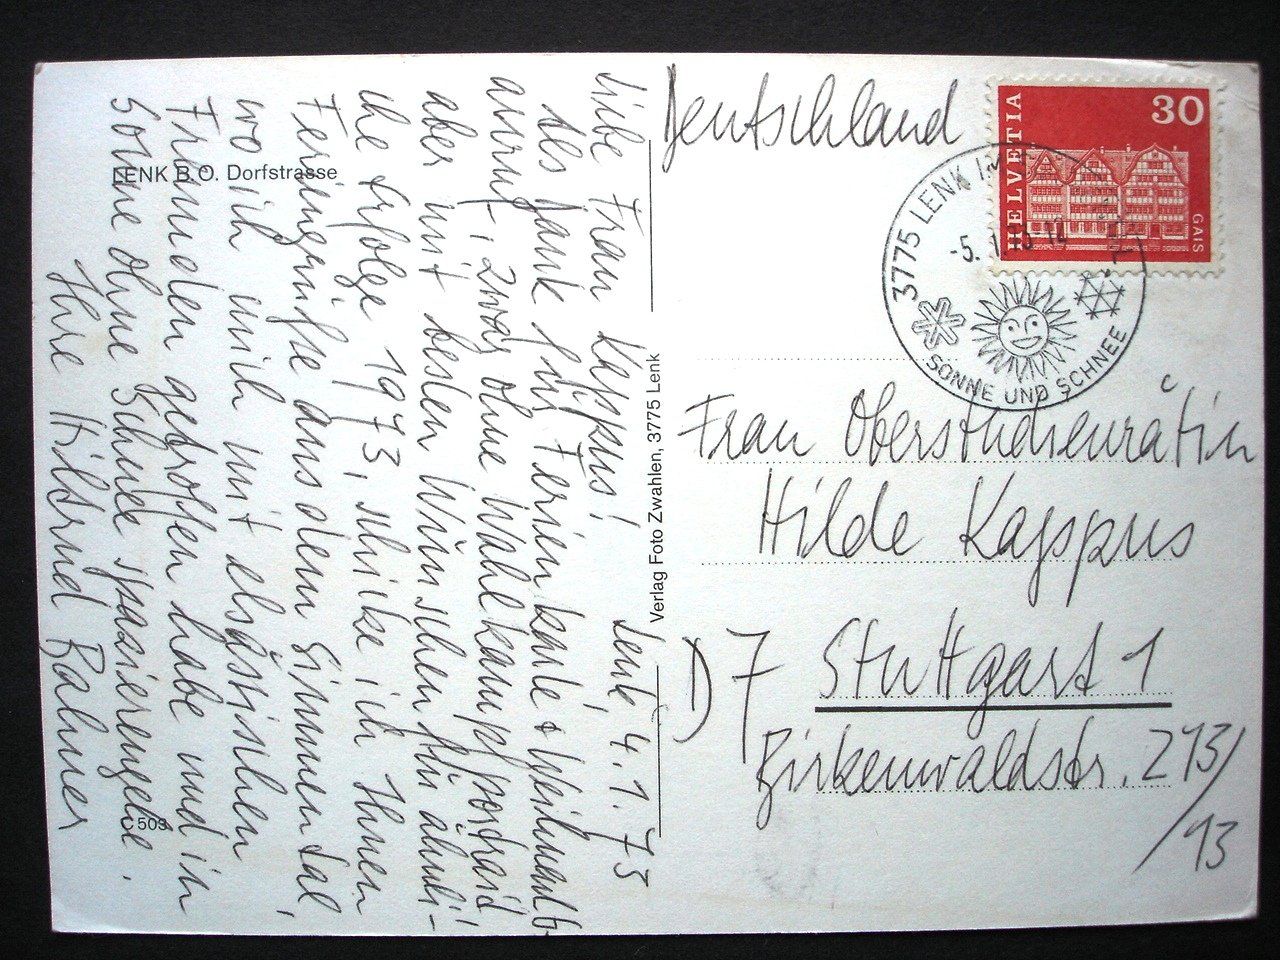 Lenk, 4.1.73
Liebe Frau Kappus!
Als Dank für Ferienkarte & Weihnachts-
anruf, zwar ohne Wahlkampfportrait,
aber mit besten Wünschen für ähnli-
che Erfolge 1973, schicke ich Ihnen
Feriengrüße aus dem Simmental,
wo ich mich mit elsässischen
Freunden getroffen habe und in
Sonne ohne Schnee spazierengehe.
Ihre Hiltrud Bahner
LENK B.O. Dorfstrasse
C 503
Verlag Foto Zwahlen, 3775 Lenk
Deutschland
HELVETIA
30
GAIS
3775 LENK IM
-5.1.
SONNE UND SCHNEE
Frau Oberstudienrätin
Hilde Kappus
D 7 Stuttgart 1
Birkenwaldstr. 213/
/13